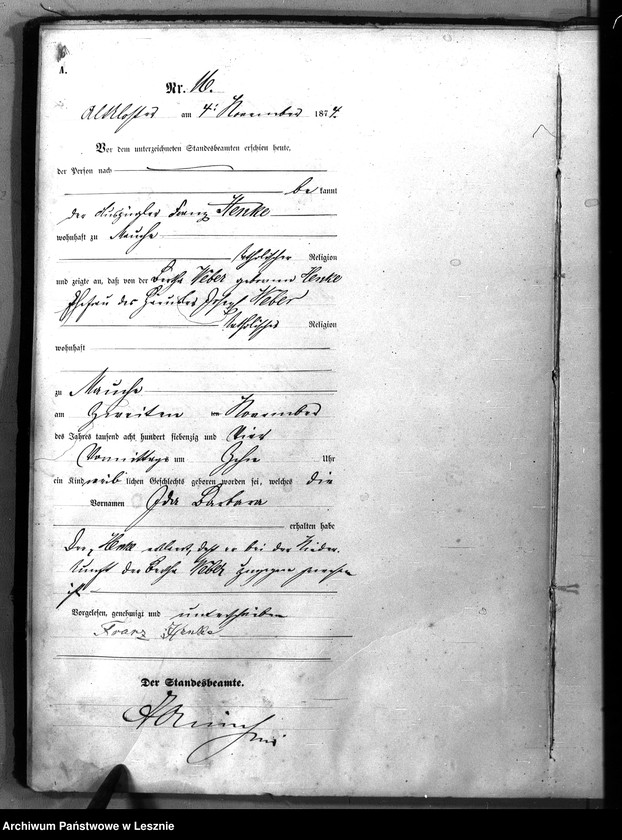 A.
Nr. 16.
Altkloster am 4t November 1874.
Vor dem unterzeichneten Standesbeamten erschien heute,
der Person nach
be kannt
der Auszügler Franz Henke
wohnhaft zu Mauche
katholischer Religion
und zeigte an, daß von der Bertha Weber geborene Henke
Ehefrau des Joseph Weber
katholischer Religion
wohnhaft
zu Mauche
am zweiten November
des Jahres tausend acht hundert siebenzig und vier
Vormittags um Zehn Uhr
ein Kind weib lichen Geschlechts geboren worden sei, welches die
Vornamen Ida Barbara
erhalten habe
Der Henke erklärt, daß er bei der Nieder-
kunft der Bertha Weber zugegen gewesen
ist
Vorgelesen, genehmigt und unterschrieben
Franz Henke
Der Standesbeamte.
Archiwum Państwowe w Lesznie